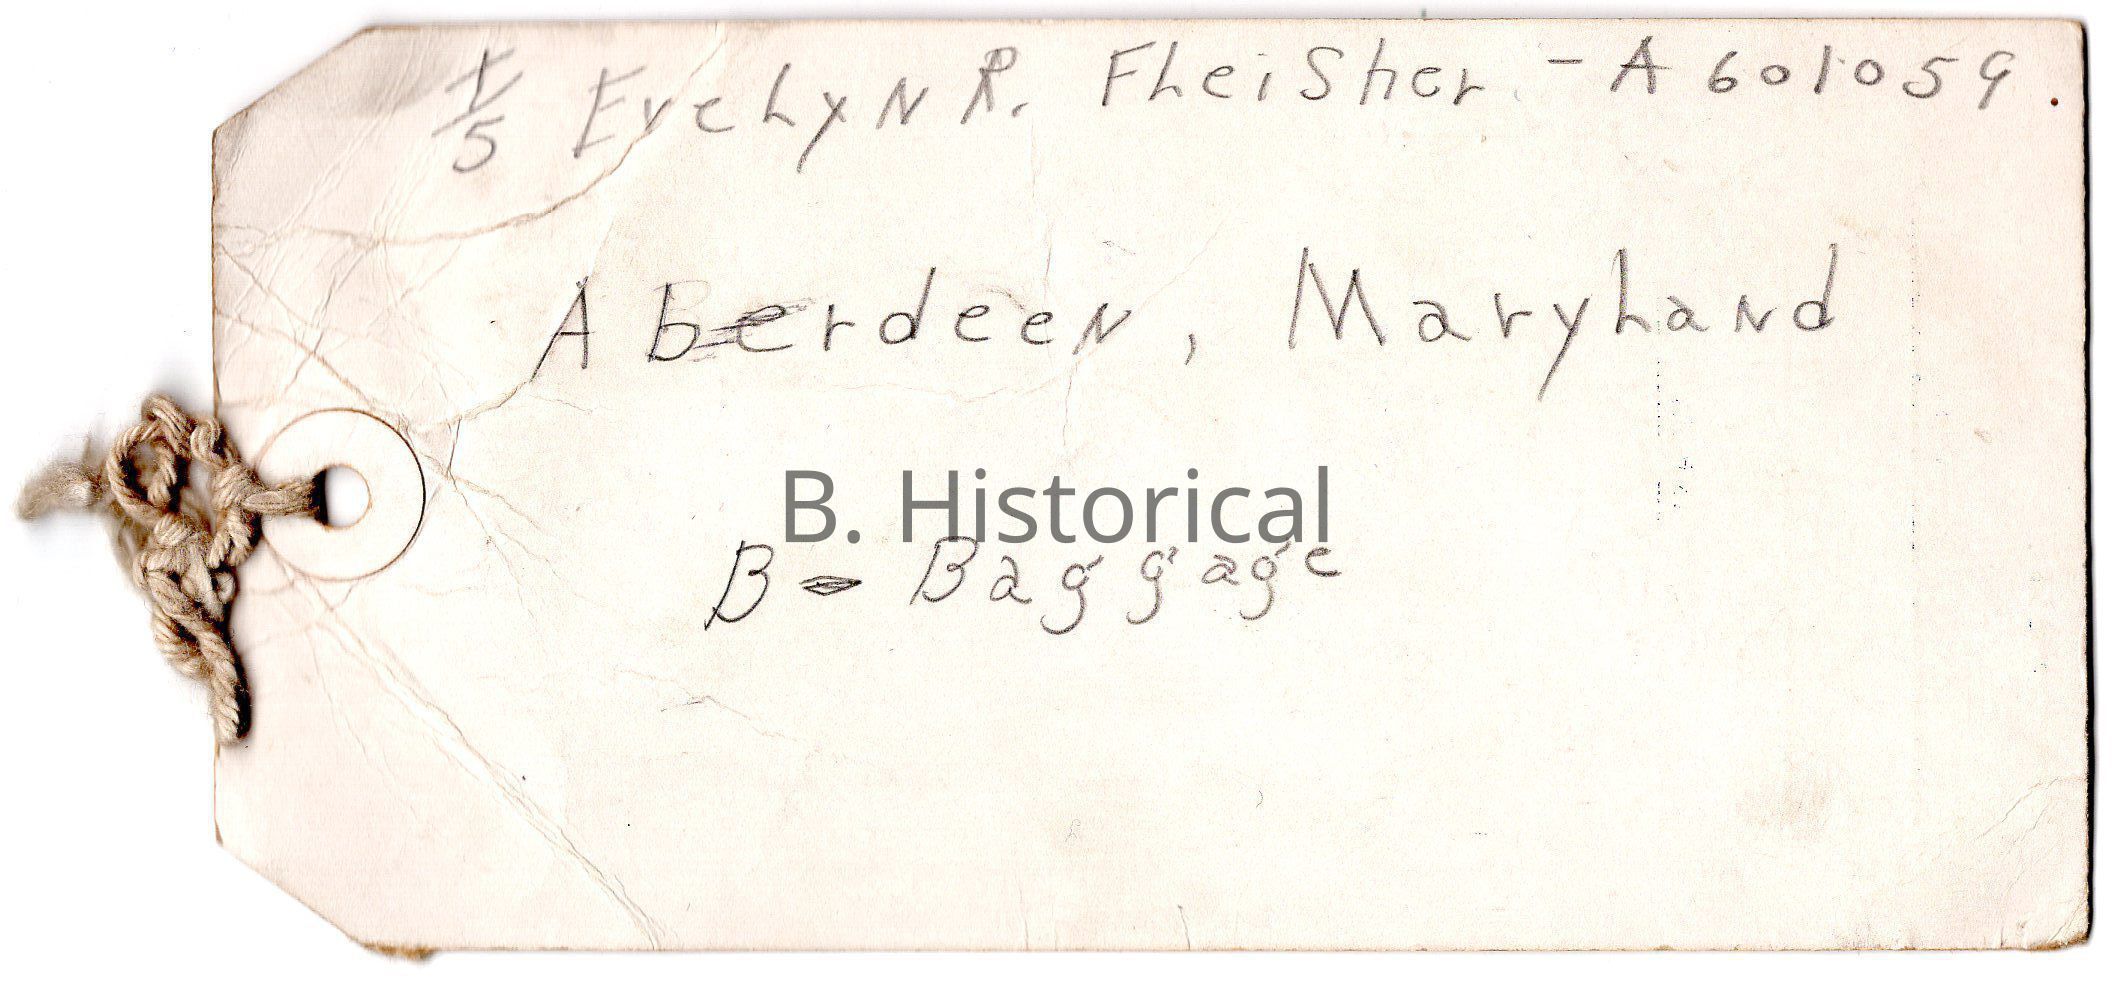 T/5 Evelyn R. Fleisher - A601059.
Aberdeen, Maryland
B. Historical
B - Baggage